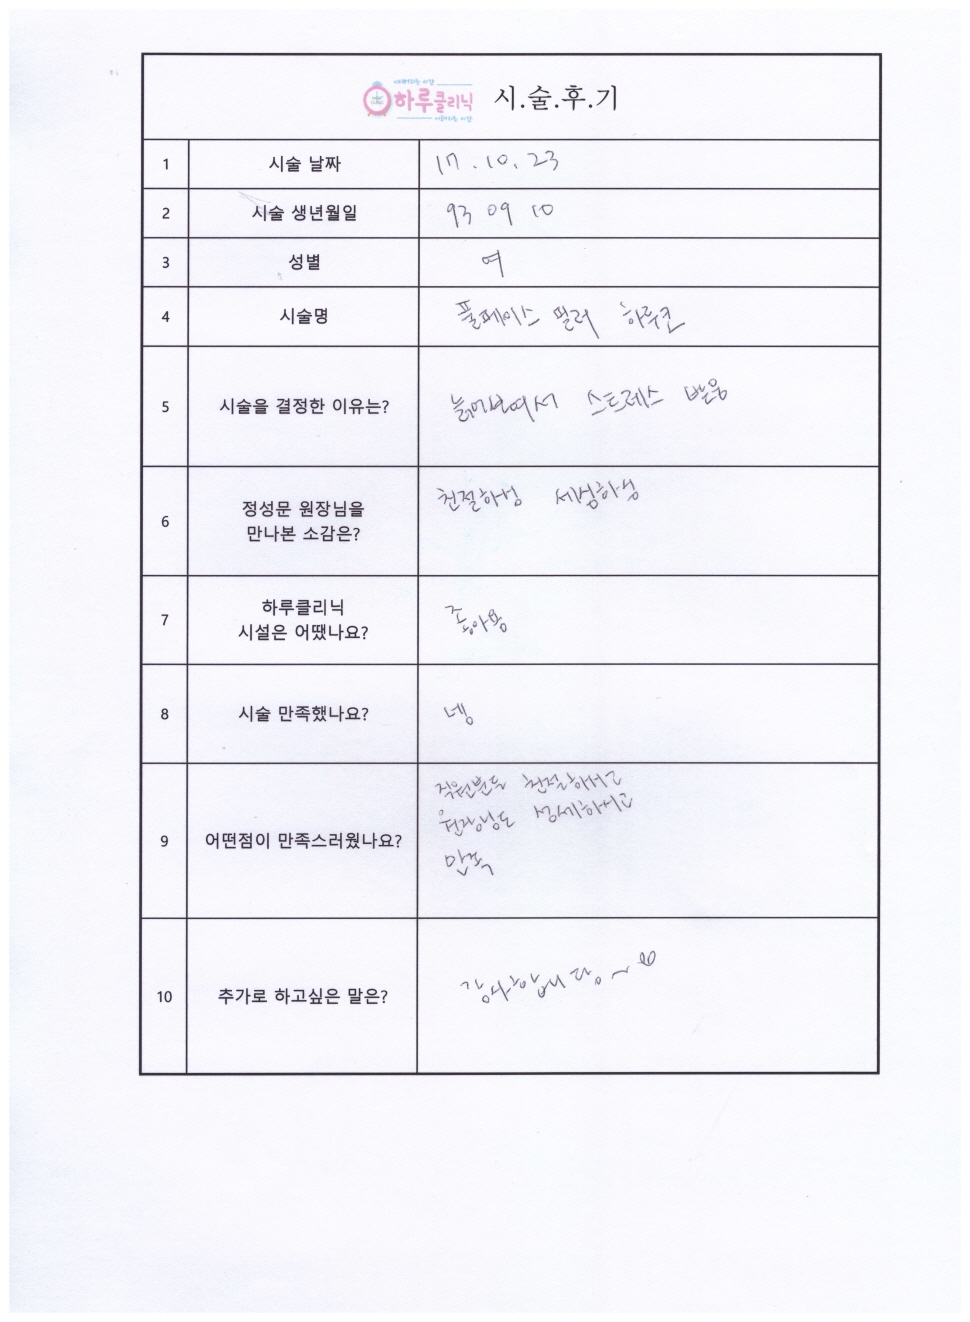 하루클리닉 시.술.후.기
1 시술 날짜 17.10.23
2 시술 생년월일 93 09 10
3 성별 여
4 시술명 풀페이스 필러 하루코
5 시술을 결정한 이유는? 늙어보여서 스트레스 받음
6 정성문 원장님을
만나본 소감은? 친절하셩 세심하셩
7 하루클리닉
시설은 어땠나요? 좋아용
8 시술 만족했나요? 넹
9 어떤점이 만족스러웠나요? 직원분들 친절하시고
원장님도 섬세하시고
만족
10 추가로 하고싶은 말은? 감사합니당~